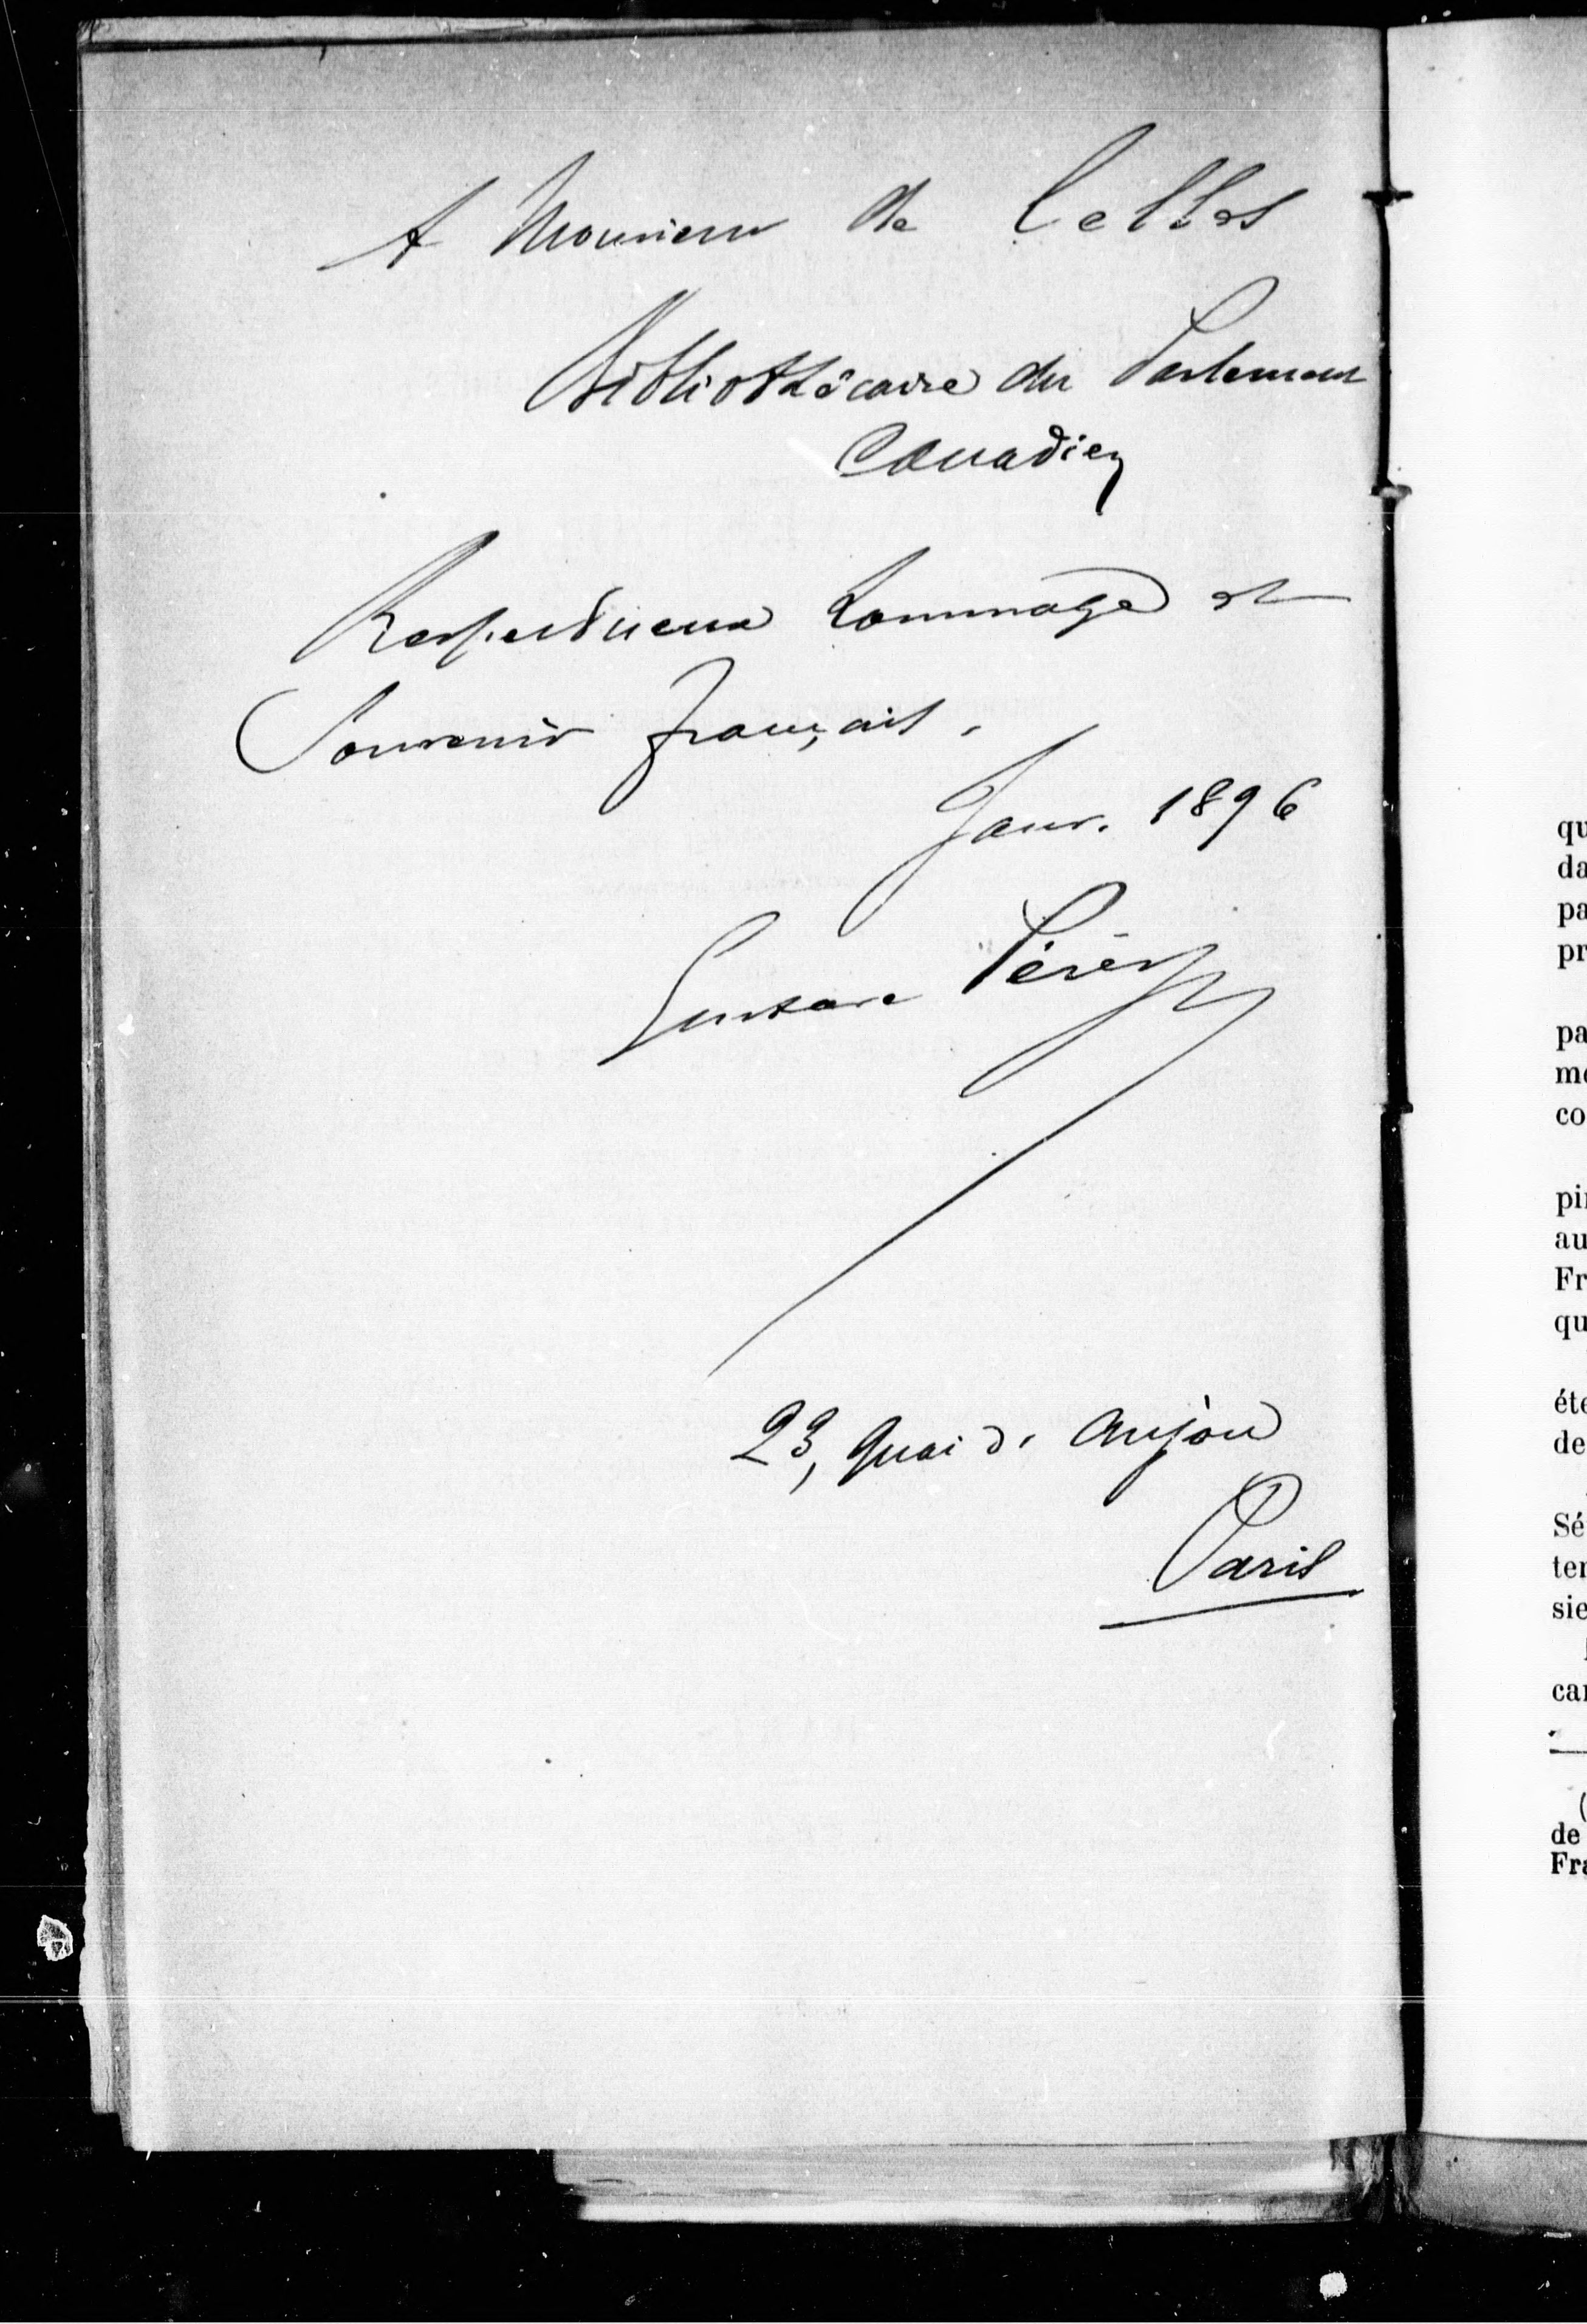 A Monsieur de Celles
Bibliothécaire du Parlement
Canadien
Respectueux hommage et
Souvenir français.
Janv. 1896
Gustave
23, Quai d'Anjou
Paris
qu
da
pa
pr
pa
co
au
Fr
qu
de
Sé
sie
de